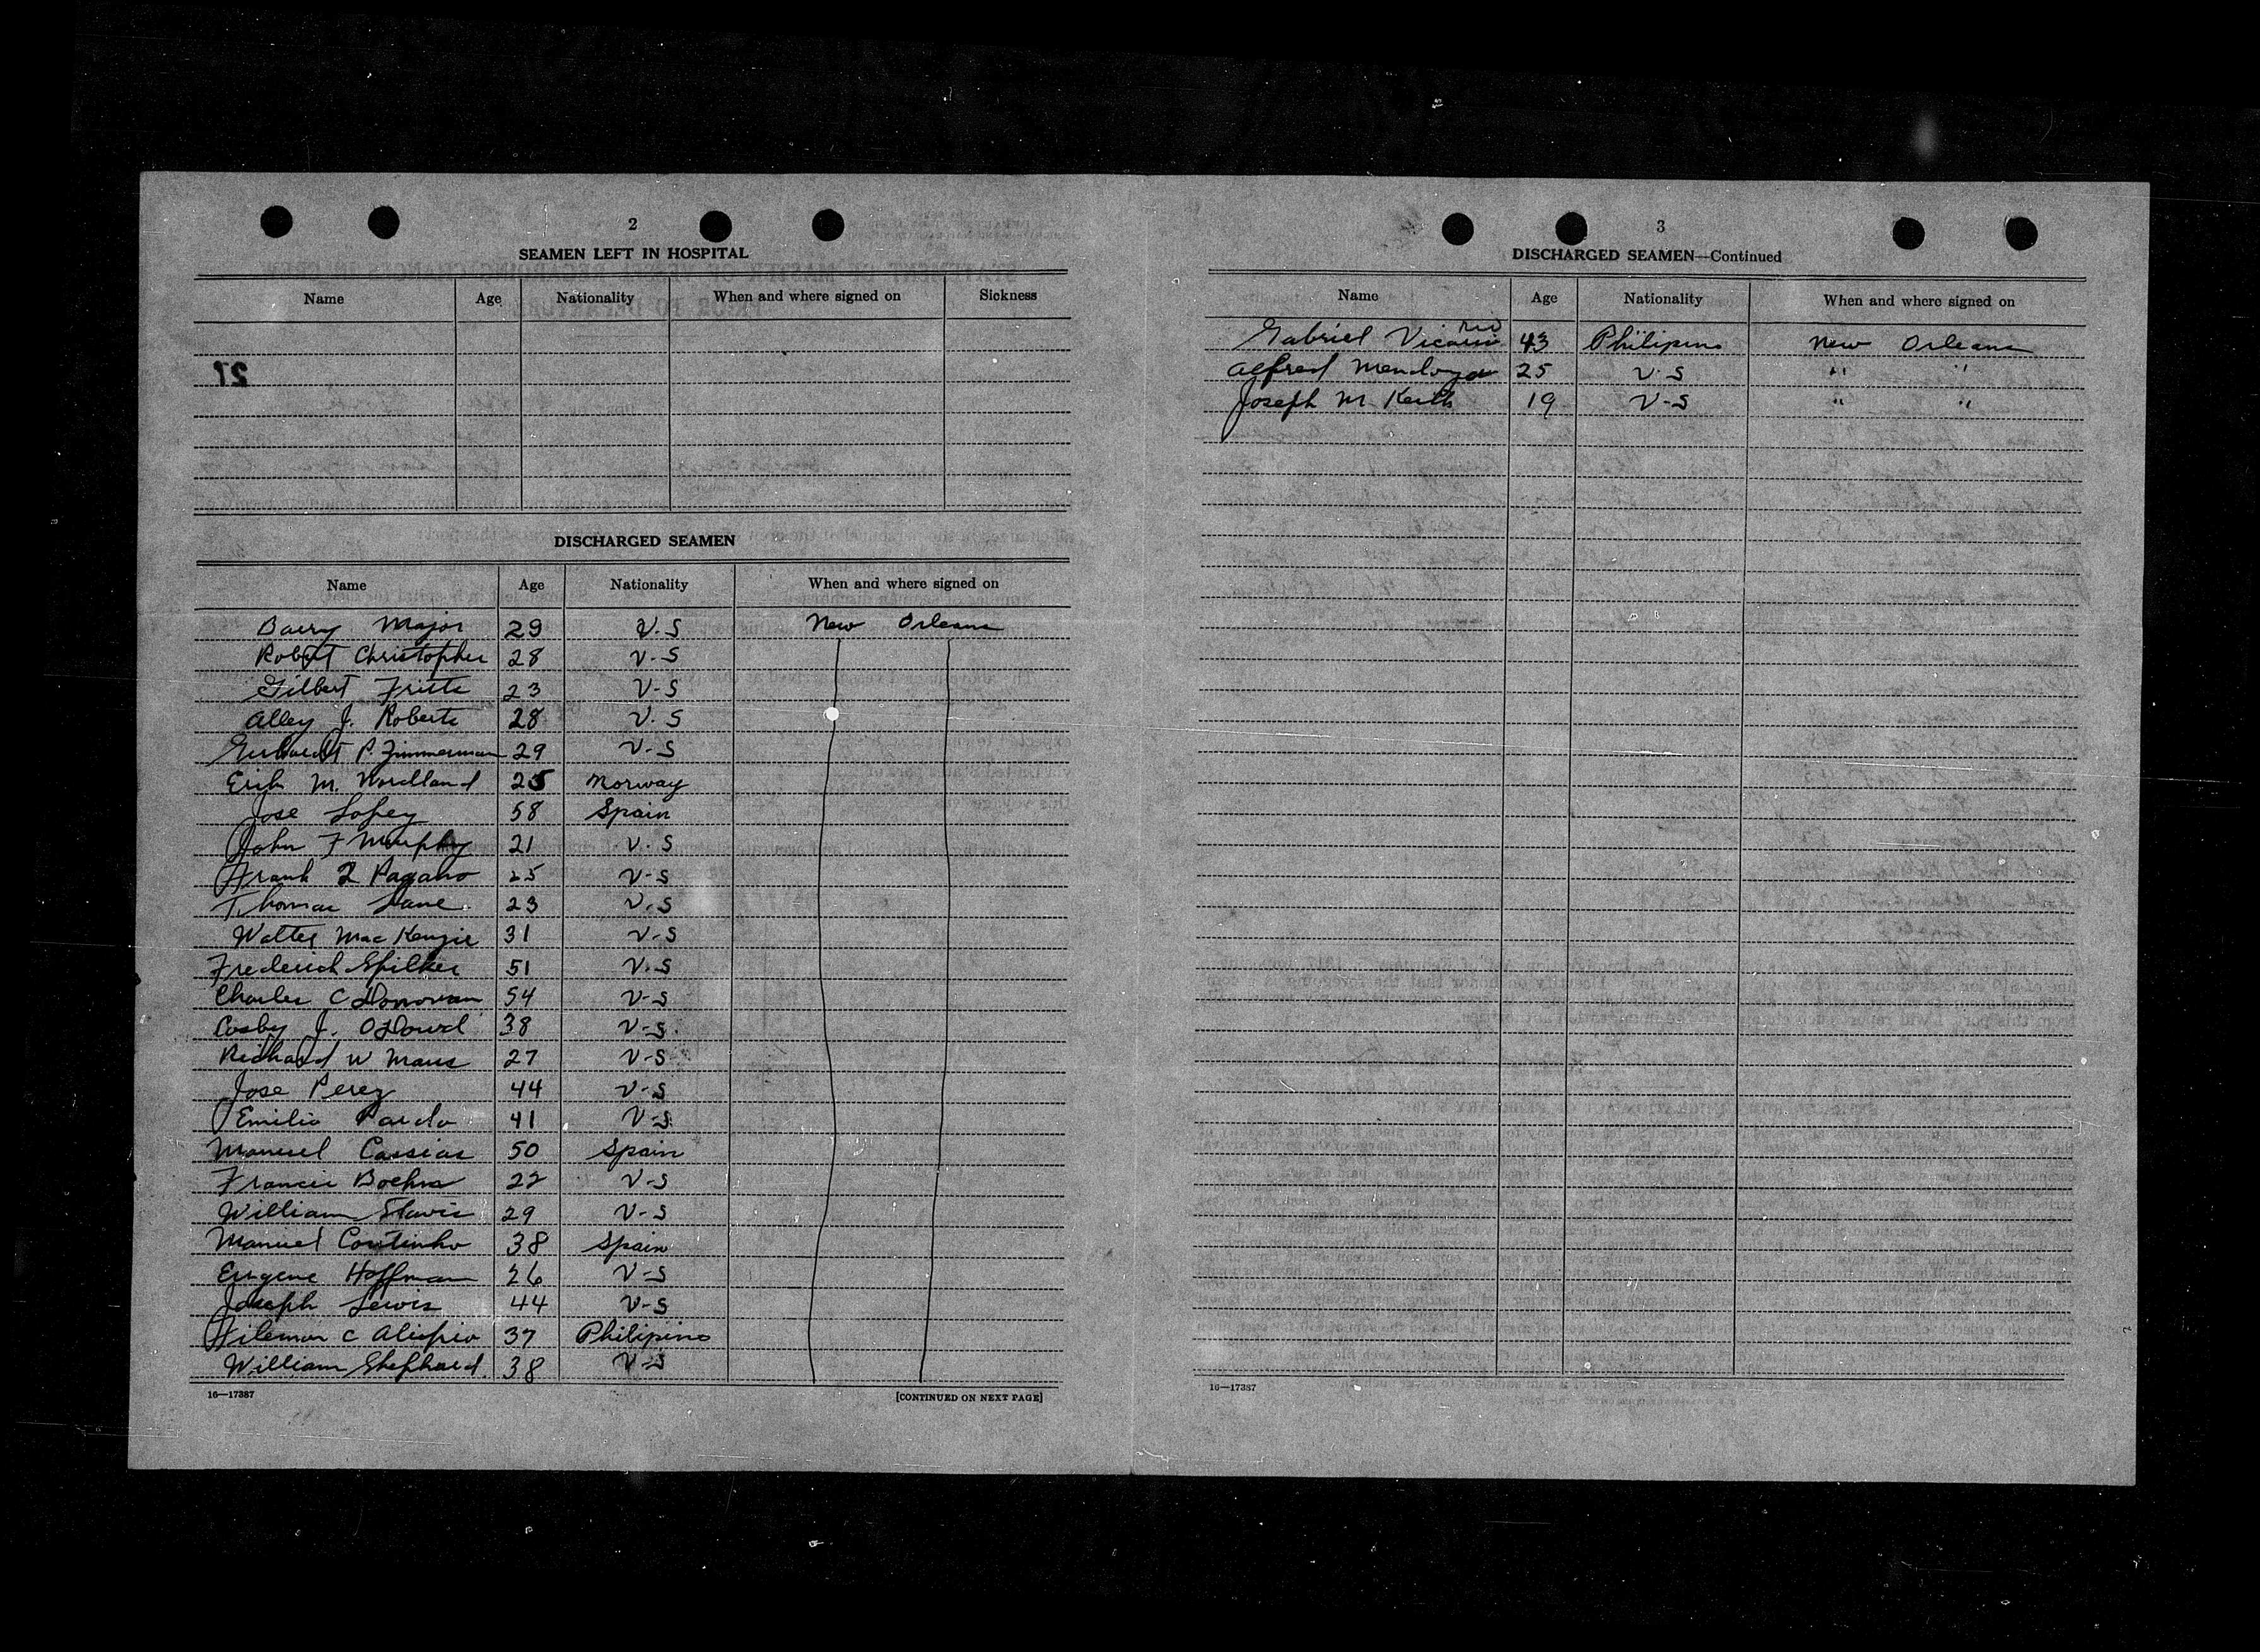 2
SEAMEN LEFT IN HOSPITAL
Name Age Nationality When and where signed on Sickness
21
DISCHARGED SEAMEN
Name Age Nationality When and where signed on
Barry Major 29 U.S New Orleans
Robert Christopher 28 U-S
Gilbert Fritts 23 U-S
Alley J. Roberts 28 U.S
Gerhardt P. Zimmerman 29 U-S
Erik M. Nordland 25 Norway
Jose Lopez 58 Spain
John F Murphy 21 U.S
Frank Pagano 25 U-S
Thomas Lane 23 U.S
Walter MacKenzie 31 U-S
Frederick Spilker 51 U.S
Charles C Donovan 54 U-S
Cosby J. O'Dowd 38 U-S
Richard W Maus 27 U-S
Jose Perez 44 U-S
Emilio Pardo 41 U-S
Manuel Cassias 50 Spain
Francis Boehm 22 U-S
William 29 U-S
Manuel Coutinho 38 Spain
Eugene Hoffman 26 U-S
Joseph Lewis 44 U-S
Filemon C Alispio 37 Philipino
William Shephard 38 U-S
16—17387 [CONTINUED ON NEXT PAGE]
3
DISCHARGED SEAMEN—Continued
Name Age Nationality When and where signed on
rio
Gabriel 43 Philipino New Orleans
Alfred Mendoza 25 U.S " "
Joseph M Keith 19 U-S " "
16—17387